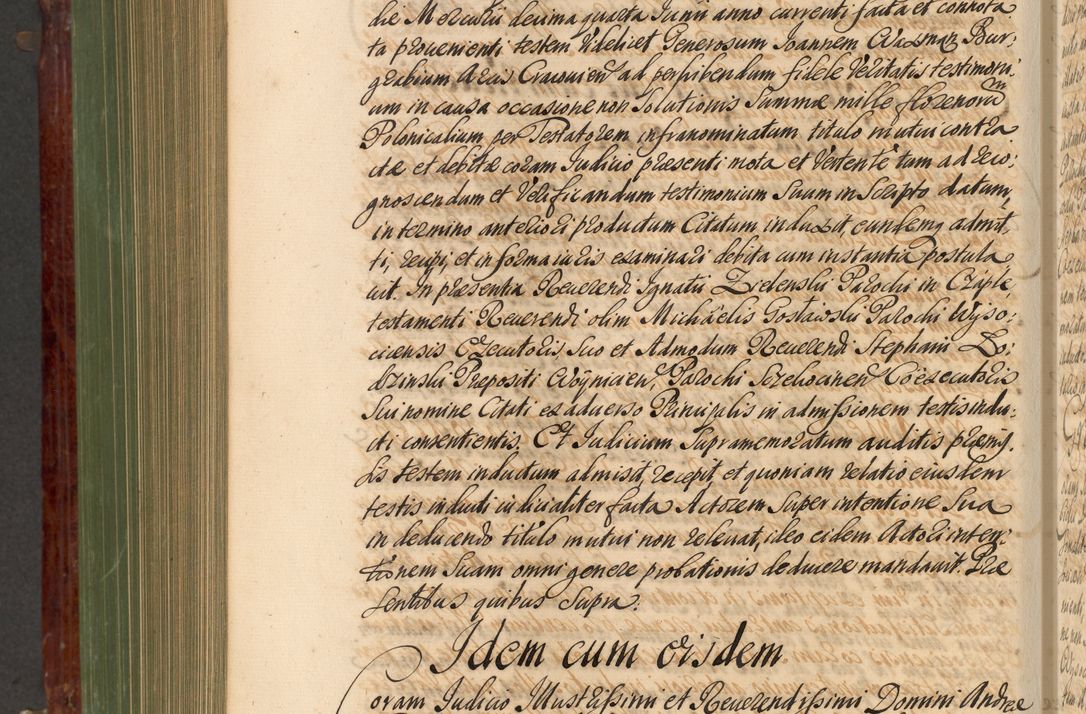 die Mercurii decima quarta Junii anno currenti facta et connota
ta provenienti testem videlicet Generosum Joannem Bur:
grabium Arcis Cracovien ad perhibendum fidele veritatis testimoni:
um in causa occasione non Solutionis Summæ mille florenorum
Polonicalium per Testatorem infranominatum titulo mutui contra
ctæ et debitæ coram Judicio præsenti mota et vertente tum ad reco:
gnoscendum et verificandum testimonium Suum in Scripto datum,
in termino anteriori productum Citatum induxit, eundemq admit,
ti, recipi, et in forma iuris examinari debita cum instantia postula
vit. In præsentia Reverendi Ignatii Zielenski Parochi in Czaple,
testamenti Reverendi olim Michaelis Gostawski Parochi Wyso:
cicensis Executoris, Suo et Admodum Reverendi Stephani Lo:
dzinski Præpositi Woynicien, Parochi Coexecutoris
Sui nomine Citati ex adverso Principalis in admissionem testis indu:
cti consentientis. Et Judicium Supramemoratum auditis præmis
sis testem inductum admisit, recepit et quoniam relatio eiusdem
testis inducti iudicialiter facta Actorem Super intentione Sua
in deducendo titulo mutui non relevat, ideo eidem Actori inten:
tionem Suam omni genere probationis deducere mandavit. Præ
sentibus quibus Supra.
Idem cum eisdem
Coram Judicio Illustrissimi et Reverendissimi Domini Andreæ